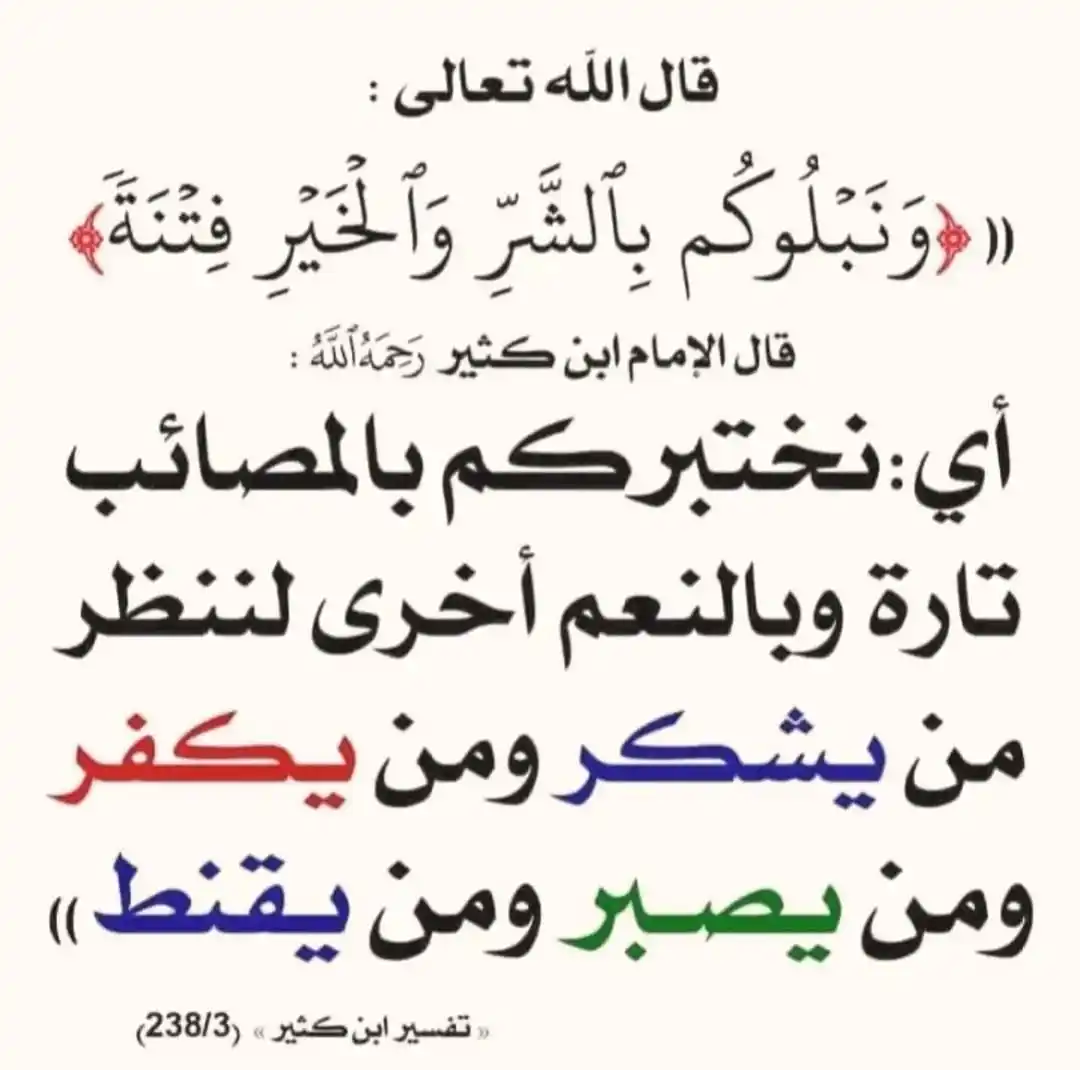 قال الله تعالى :
(( ﴿وَنَبۡلُوكُم بِٱلشَّرِّ وَٱلۡخَيۡرِ فِتۡنَةٗ﴾
قال الإمام ابن كثير رَحِمَهُ ٱللَّهُ :
أي: نختبركم بالمصائب
تارة وبالنعم أخرى لننظر
من يشكر ومن يكفر
ومن يصبر ومن يقنط ))
« تفسير ابن كثير » (238/3)